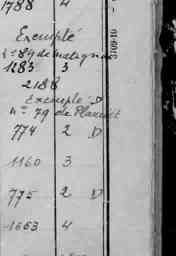 1788 4
Exempté
n° 89 de Matignon
1283 3
2188
Exempté D
n° 79 de Plancoët
774 2 D
1160 3
775 2 D
1663 4
3709-10